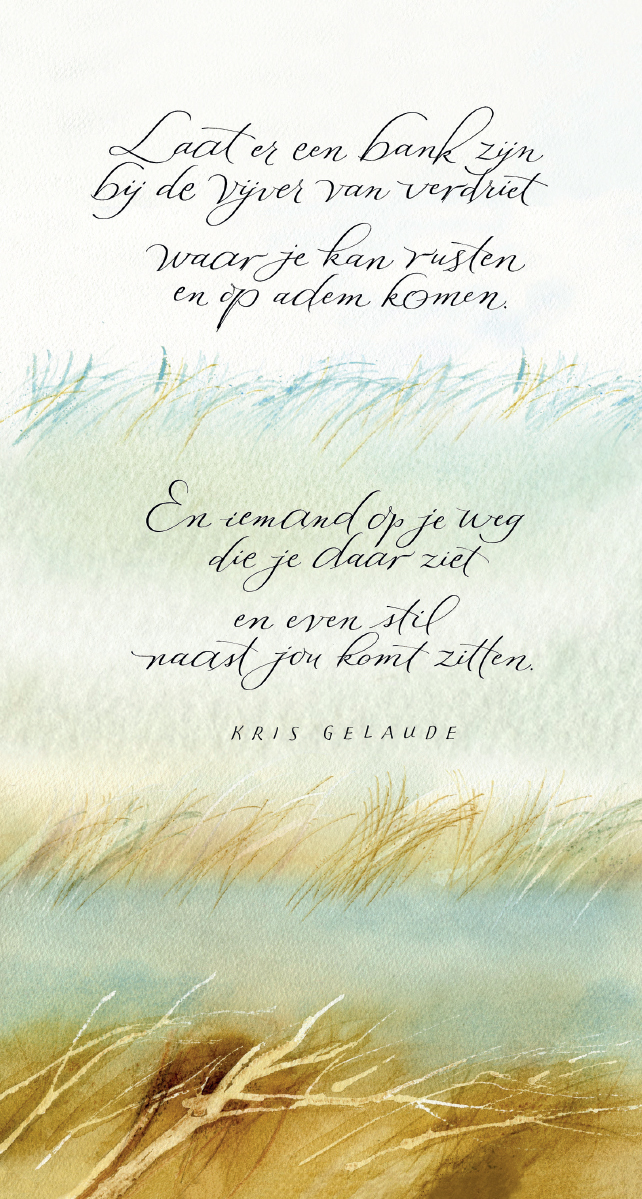 Laat er een bank zijn
bij de vijver van verdriet
waar je kan rusten
en op adem komen.
En iemand op je weg
die je daar ziet
en even stil
naast jou komt zitten.
KRIS GELAUDE